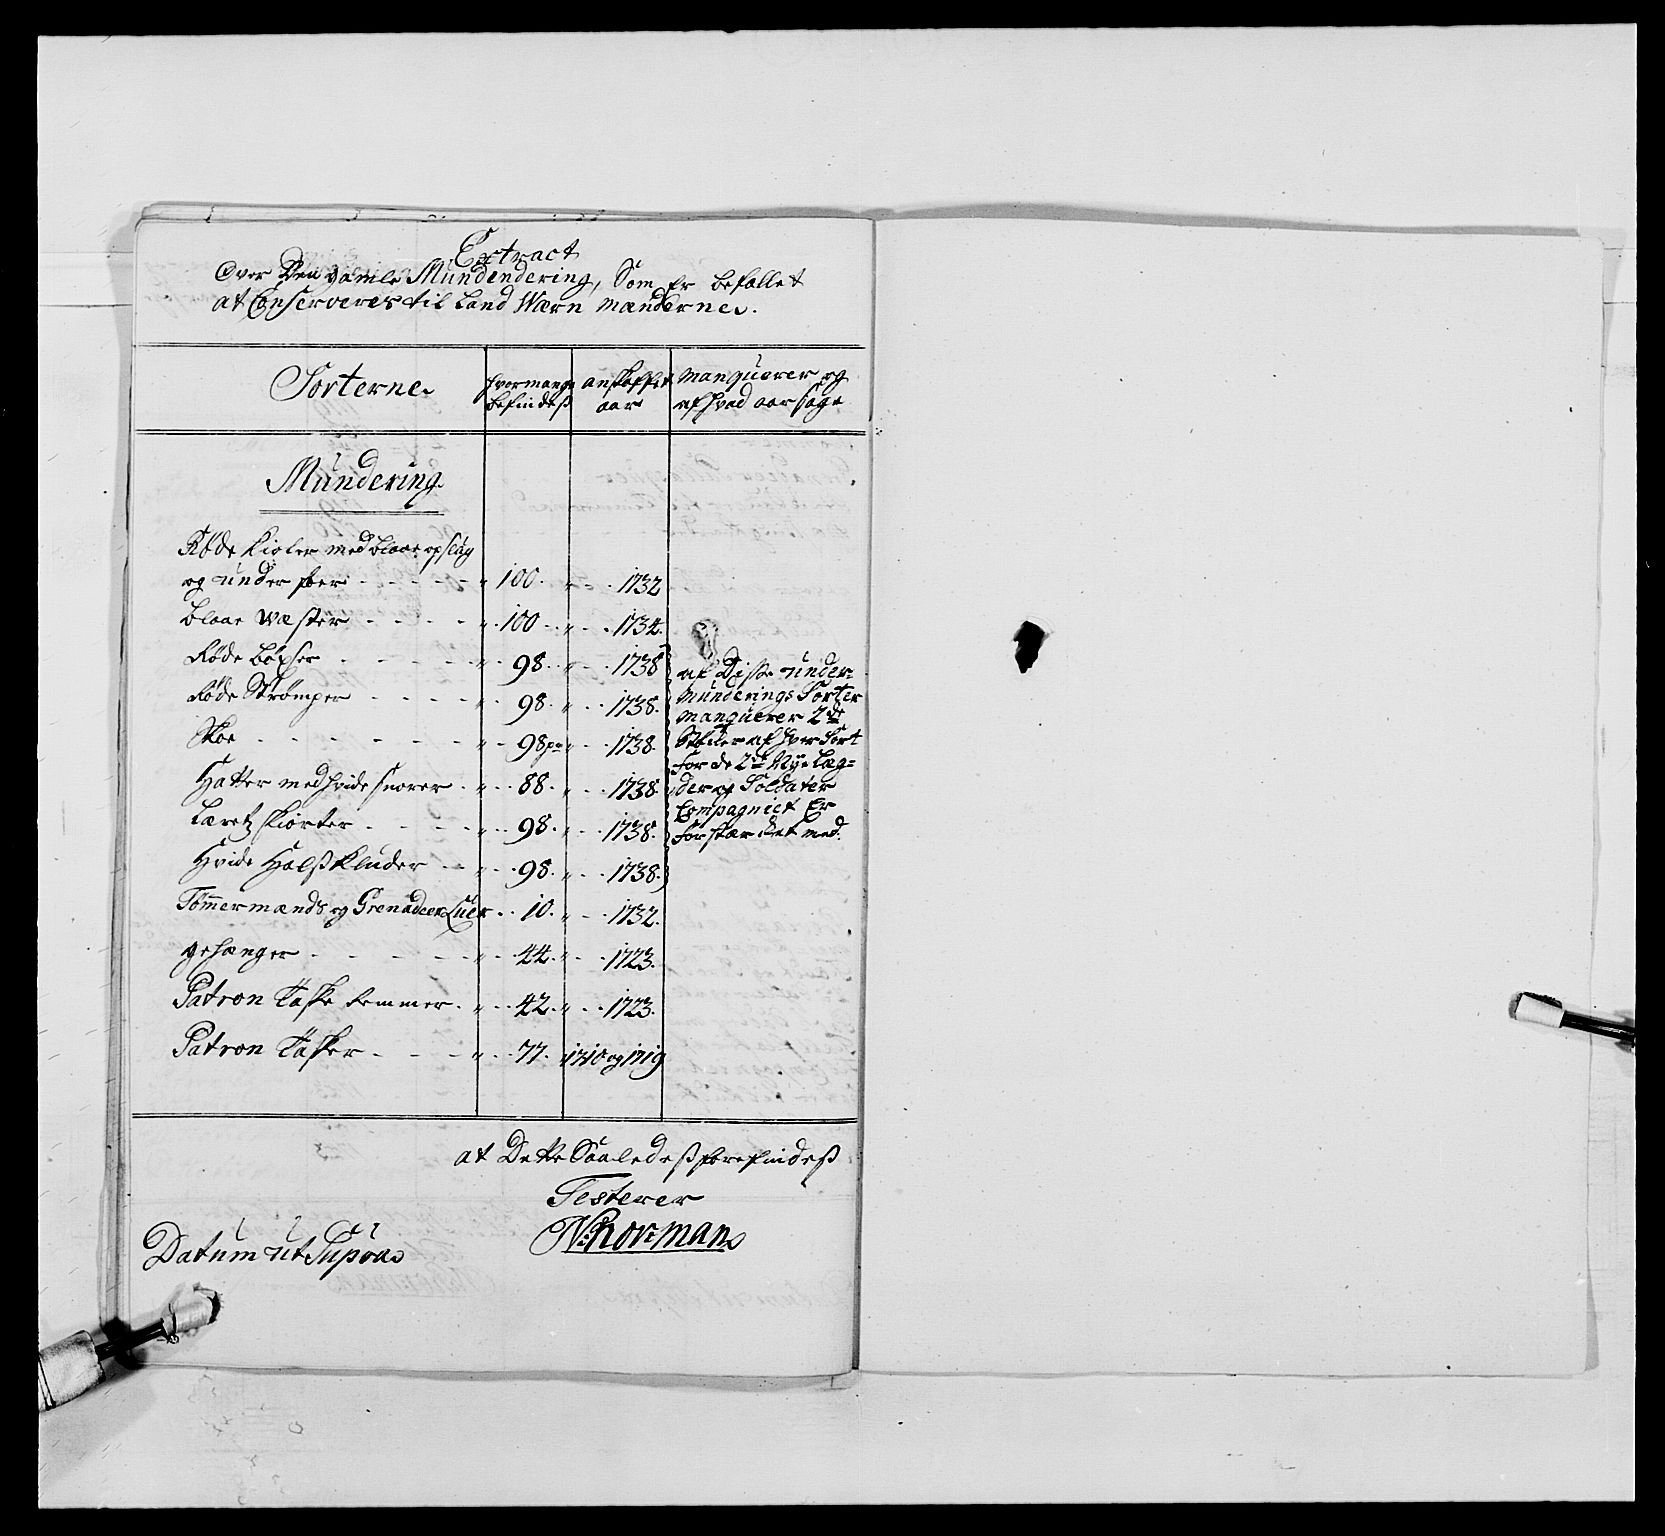 Extract
Over Den gamle Mundendering, Som Er befallet
at Conserveres til Land Wærn mænderne.
Sorterne
hvormange befindes
anskaffet aar
manquerer og af hvad aarsage
Mundering
Røde Kioler med blaae opslag
og under foer - - - - - " 100. " - - 1732
blaae Wæster - - - - " 100 - " - - 1734.
Røde bøxser - - - - " 98. " - - 1738
Røde Strømper - - - - " 98. " - - 1738.
Skoe - - - - - - " 98 pr " - - 1738.
Hatter med hvide snorer - " 88. " - - 1738
Læretz skiorter - - - - " 98. " - - 1738.
Hvide Halsskluder - - " 98. " - - 1738.
Tømmermænds og Grenadeer Luer - - 10. " - - 1732.
gehænger - - - - - " 44. " - - 1723.
Patron Taske Remmer - " 42. " - - 1723.
Patron Tasker - - - " 77. " 1710 og 1719
af Disse under-
Munderings Sorter
manquerer 2de
Støcker af hver Sort
for de 2de Nye Læg=
der og Soldater
Compagniet Er
forstærcket med.
at Dette Saaledes forefindes
Testerer
N: Norman
Datum ut Supra